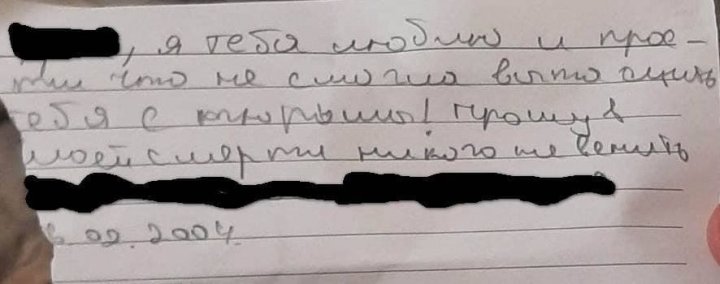 , я тебя люблю и прос-
ти что не смогла
тебя с! Прошу в
моей смерти никого не венить
02.2004.